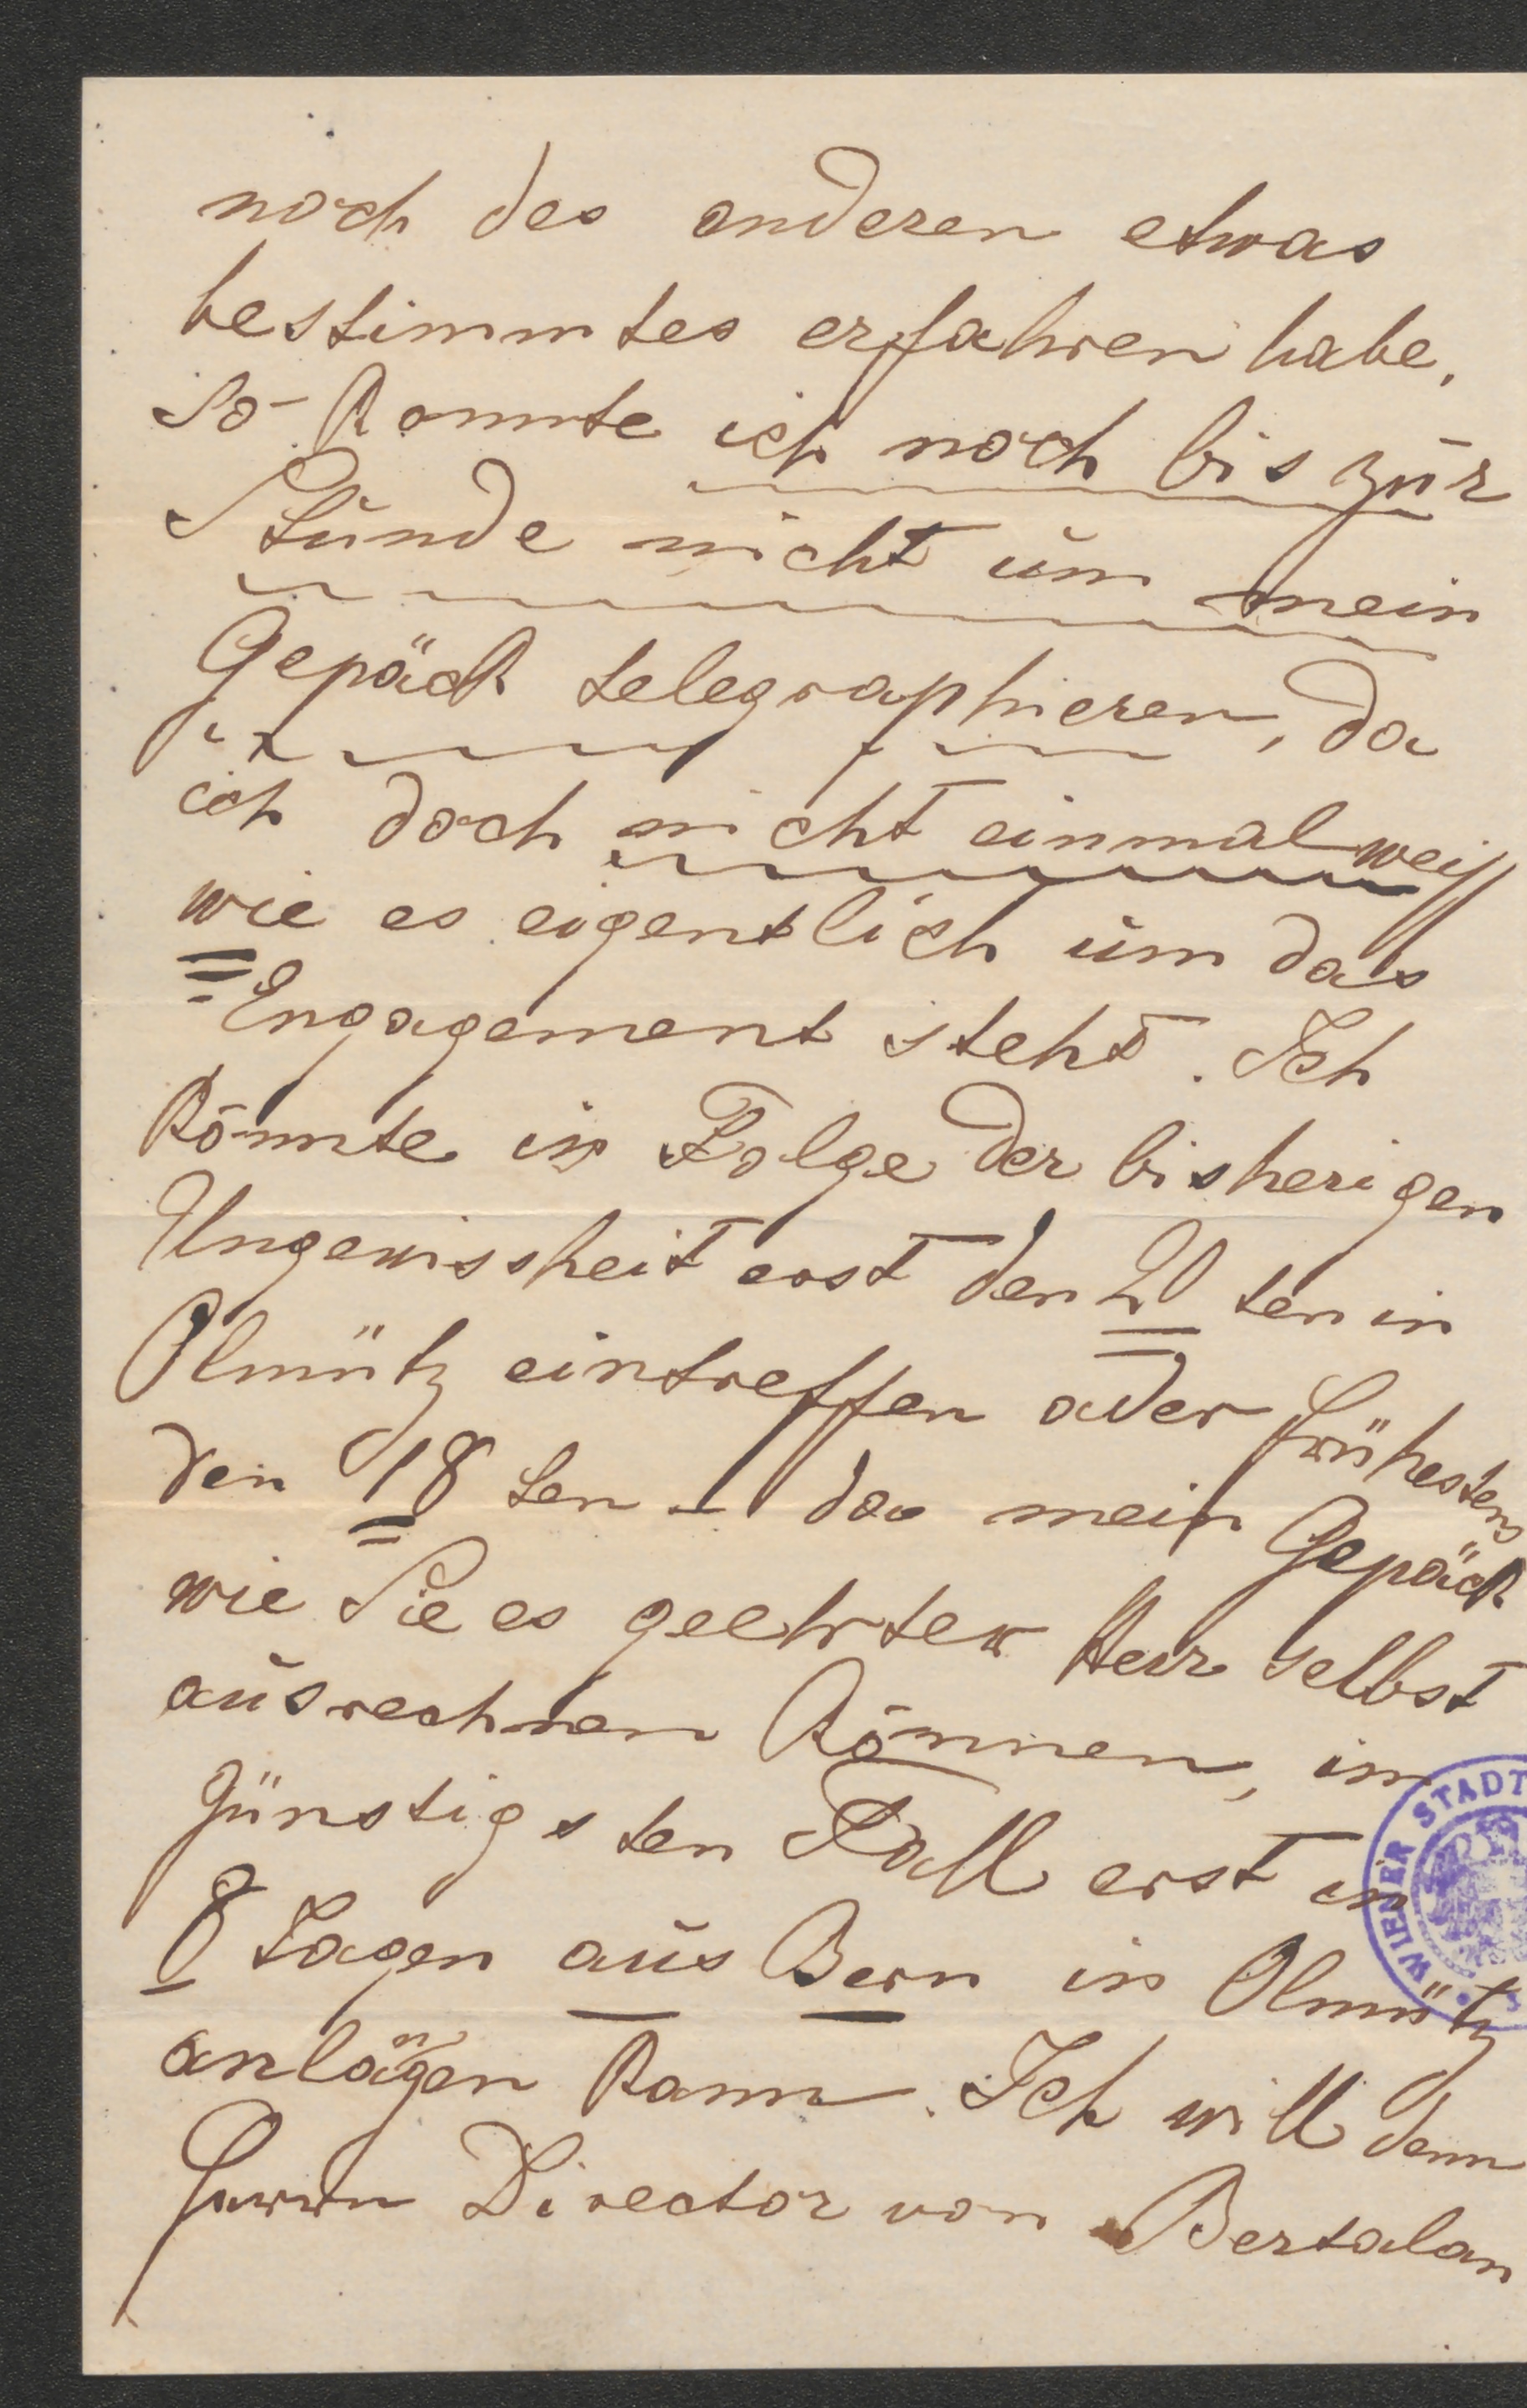 noch des anderen etwas
bestimmtes erfahren habe,
so konnte ich noch bis zur
Stunde nicht um mein
Gepäck telegraphieren, da
ich doch nicht einmal weiß
wie es eigentlich um das
Engagement steht. Ich
könnte in Folge der bisherigen
Ungewissheit erst den 20 ten in
Olmütz eintreffen oder frühestens
den 18 ten – da mein Gepäck
wie Sie es geehrter Herr selbst
ausrechnen können, im
günstigsten Fall erst in
8 Tagen aus Bern in Olmütz
anlangen kann. Ich will denn
Herrn Director von Bertalan
WIENER STADT